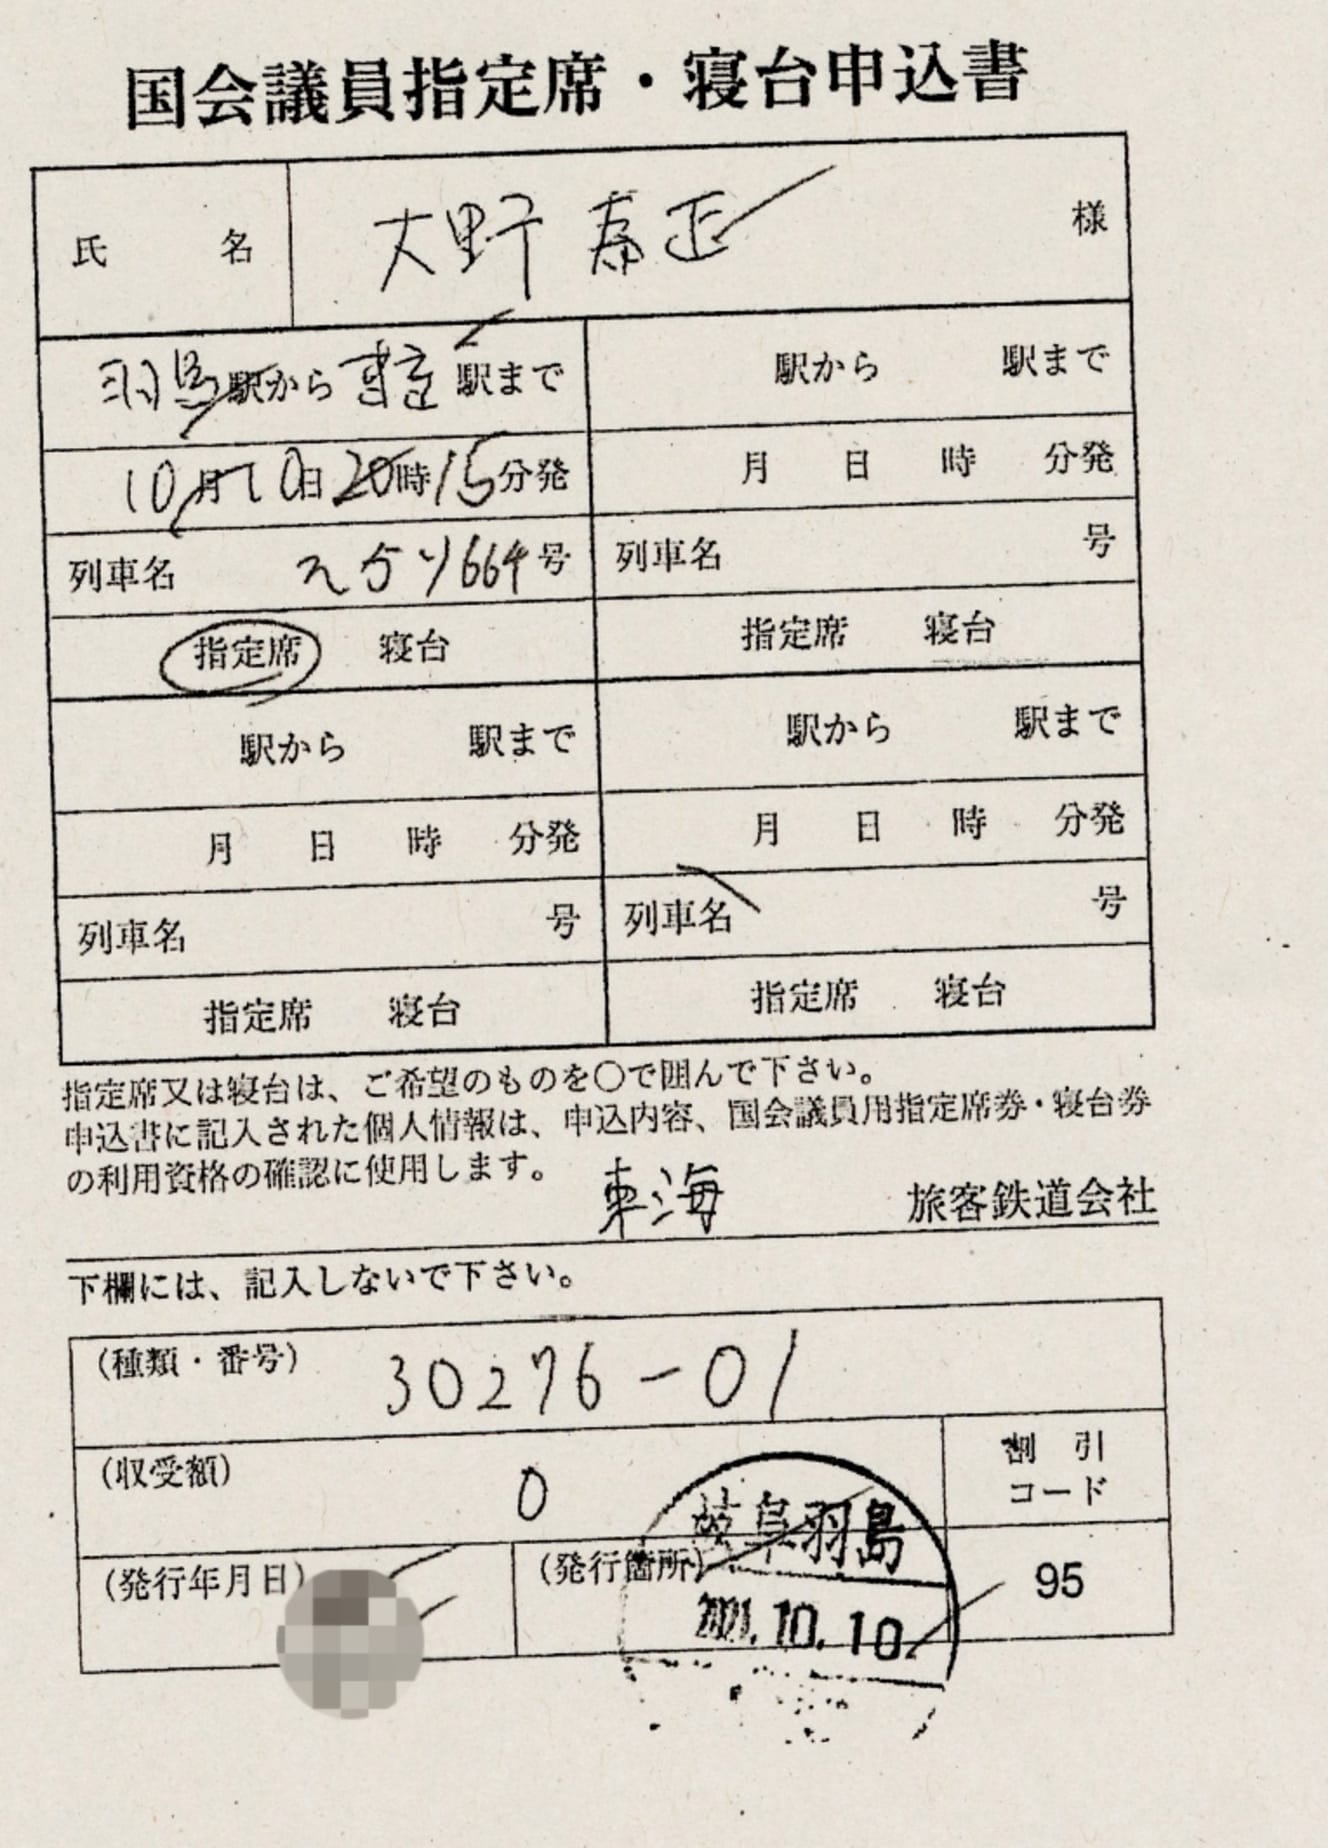 国会議員指定席・寝台申込書
氏 名 大野 泰正 様
羽島駅から 東京 駅まで 駅から 駅まで
10月10日20時15分発 月 日 時 分発
列車名 こだま664号 列車名 号
指定席 寝台 指定席 寝台
駅から 駅まで 駅から 駅まで
月 日 時 分発 月 日 時 分発
列車名 号 列車名 号
指定席 寝台 指定席 寝台
指定席又は寝台は、ご希望のものを○で囲んで下さい。
申込書に記入された個人情報は、申込内容、国会議員用指定席券・寝台券
の利用資格の確認に使用します。
東海 旅客鉄道会社
下欄には、記入しないで下さい。
(種類・番号) 30276-01
(収受額) 0 割引
コード
(発行年月日) (発行箇所) 95
岐阜羽島
2021.10.10